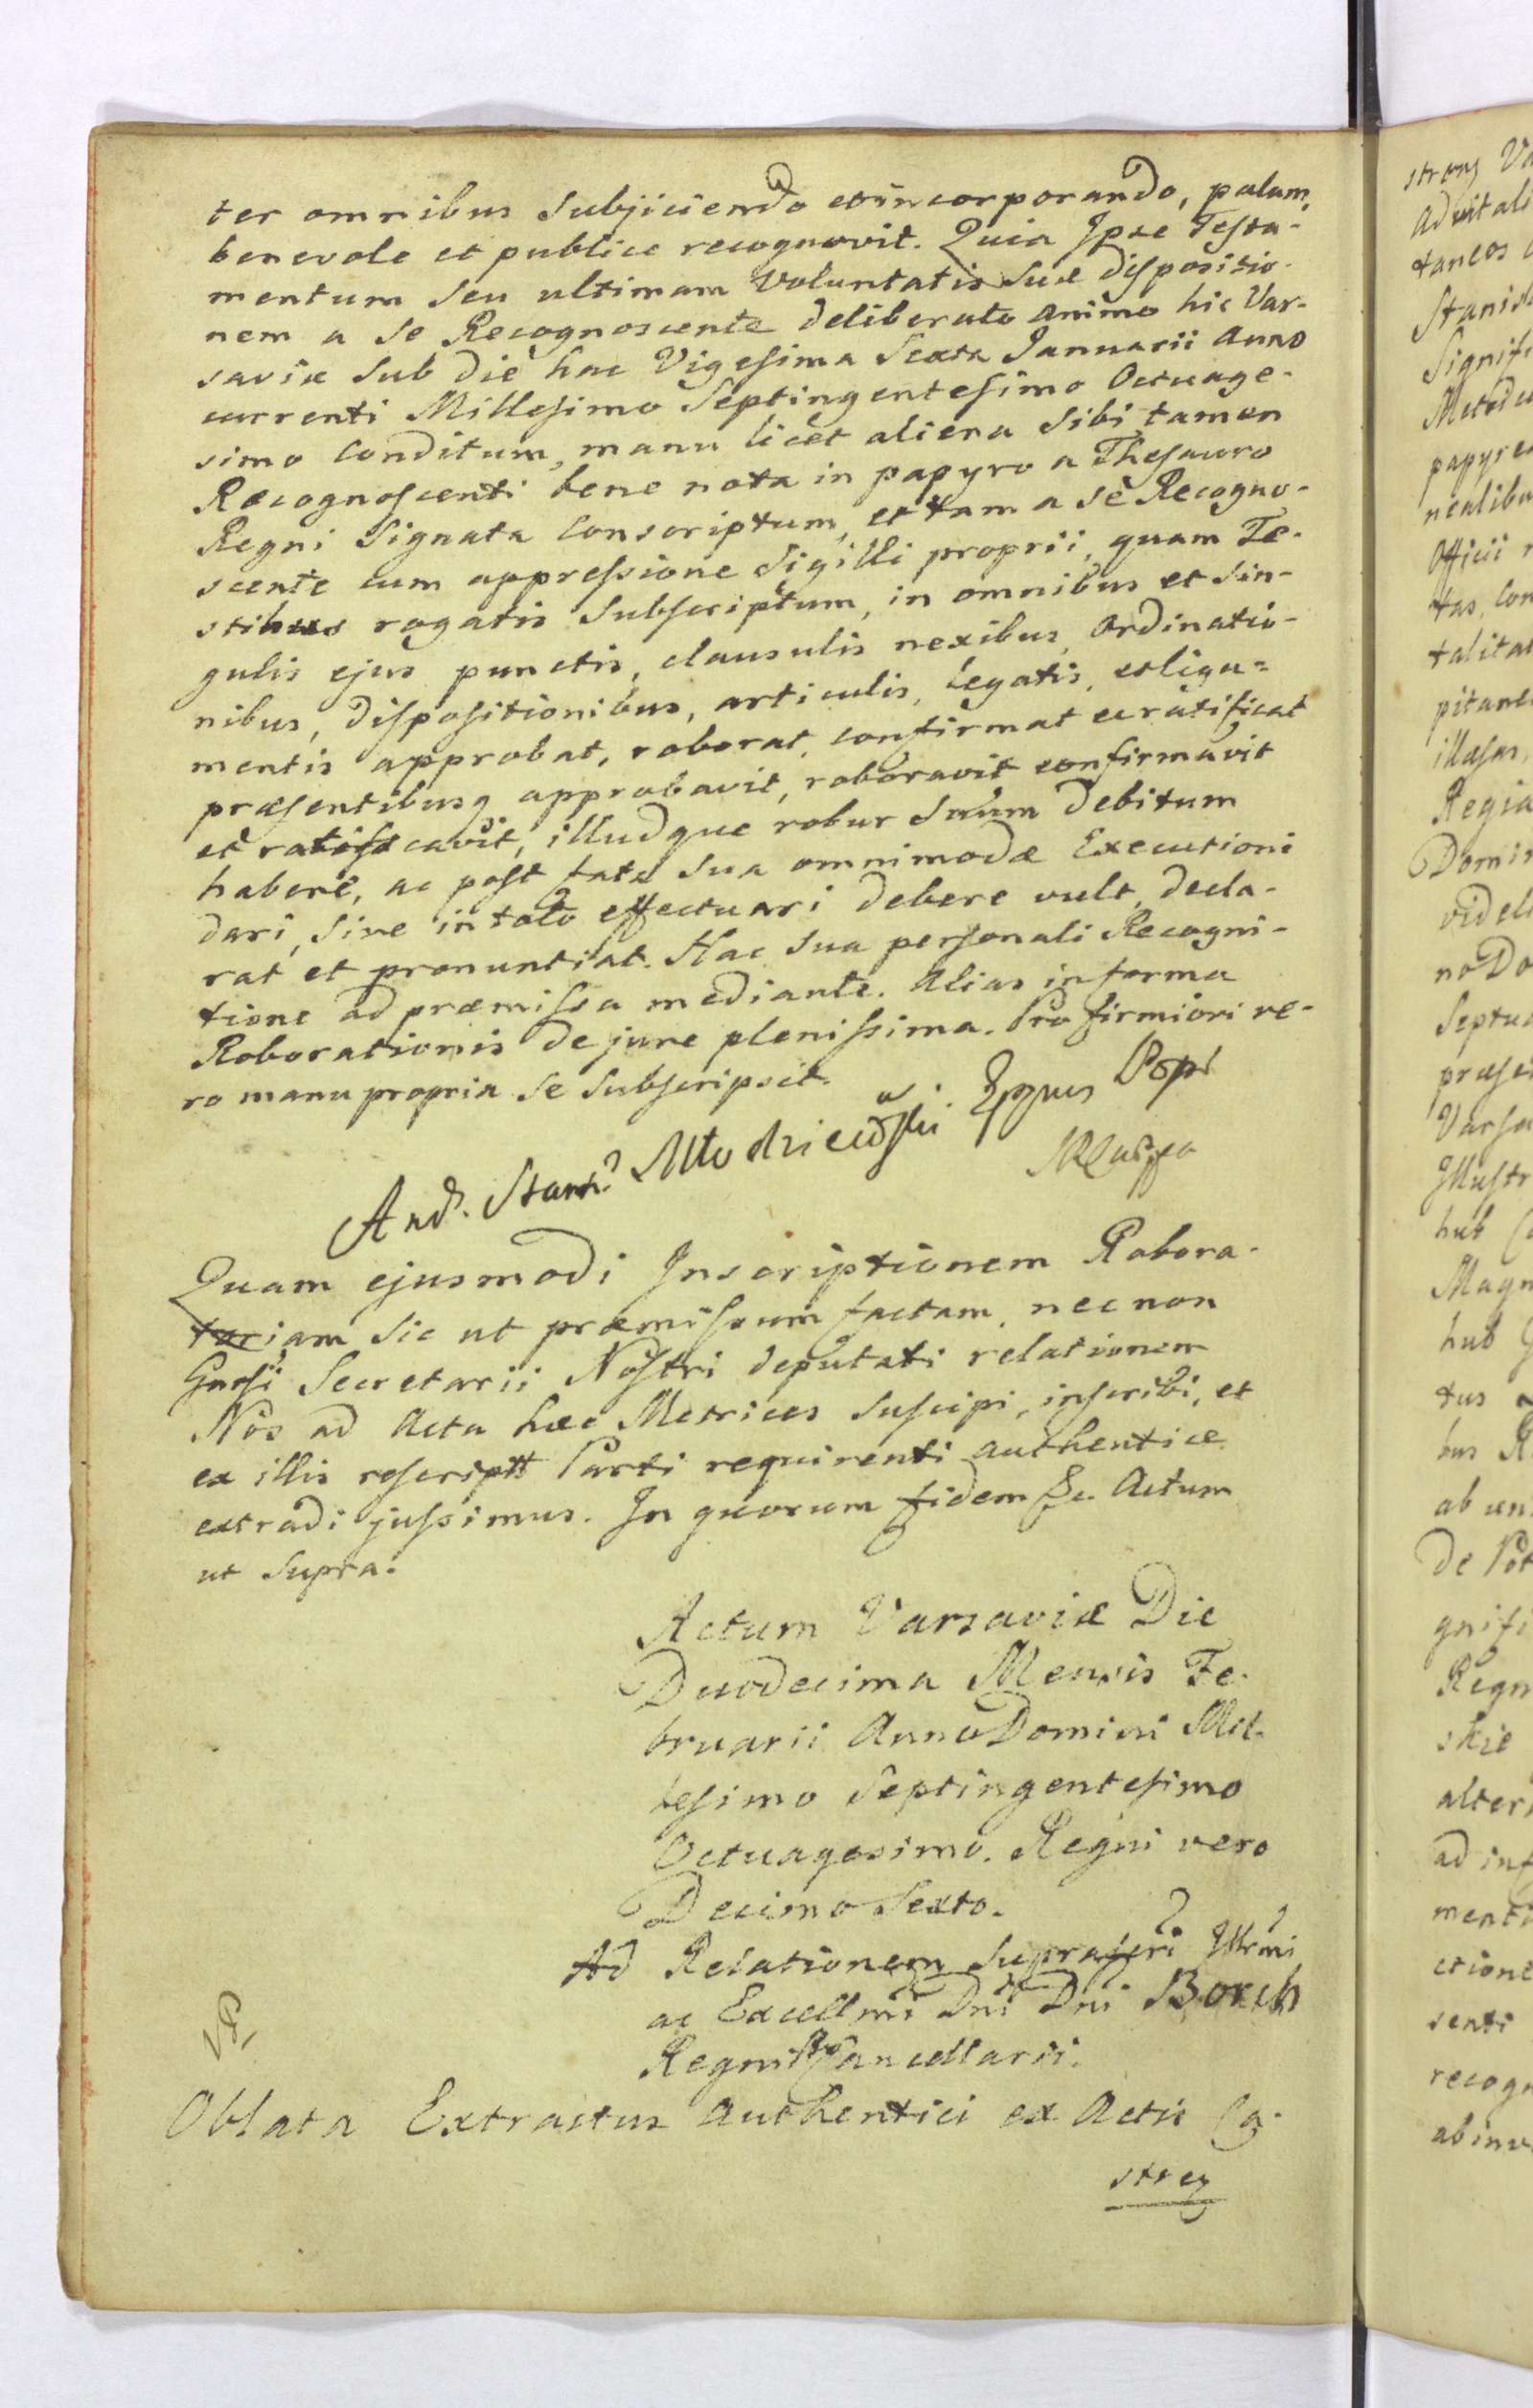 ter omnibus subjiciendo et incorporando, palam,
benevole et publice recognovit. Quia Ipse Testa-
mentum seu ultimam Voluntatis suæ dispositio-
nem a se Recognoscente deliberato animo hic Var-
saviæ sub die hac Vigesima Sexta Januarii Anno
currenti Millesimo Septingentesimo Octuage-
simo Conditum, manu licet aliena sibi tamen
Recognoscenti bene nota in papyro a Thesauro
Regni Signata Conscriptum, et tam a se Recogno-
scente cum appressione Sigilli proprii, quam Te-
stibus rogatis subscriptum, in omnibus et sin-
gulis ejus punctis, clausulis nexibus, Ordinatio-
nibus, dispositionibus, articulis, Legatis, et liga=
mentis approbat, roborat, confirmat et ratificat
præsentibusq approbavit, roboravit confirmavit
et ratificavit, illudque robur suum debitum
habere, ac post fata sua omnimodæ Executioni
dari, sive in toto effectuari debere vult, decla-
rat et pronuntiat. Hac sua personali Recogni-
tione ad præmissa mediante. Alias in forma
Roborationis de jure plenissima. Pro firmiori ve-
ro manu propria se subscripsit.
And. Stan. Młodziejowski Eppus Posn
Quam ejusmodi Inscriptionem Robora-
toriam sic ut præmissum factam, nec non
Gnrsi Secretarii Nostri deputati relationem
Nos ad Acta hæc Metrices suscipi, inscribi, et
ex illis rescriptt Parti requirenti authentice
extradi jussimus. In quorum fidem &c. Actum
ut supra.
Actum Varsaviæ Die
Duodecima Mensis Fe-
bruarii Anno Domini Mil-
lesimo Septingentesimo
Octuagesimo. Regni vero
Decimo Sexto.
Ad Relationem supra Illrmi
ac Excellmi Dni Dni Borch
Regni Cancellarii.
Oblata Extractus Authentici ex Actis Ca-
stren